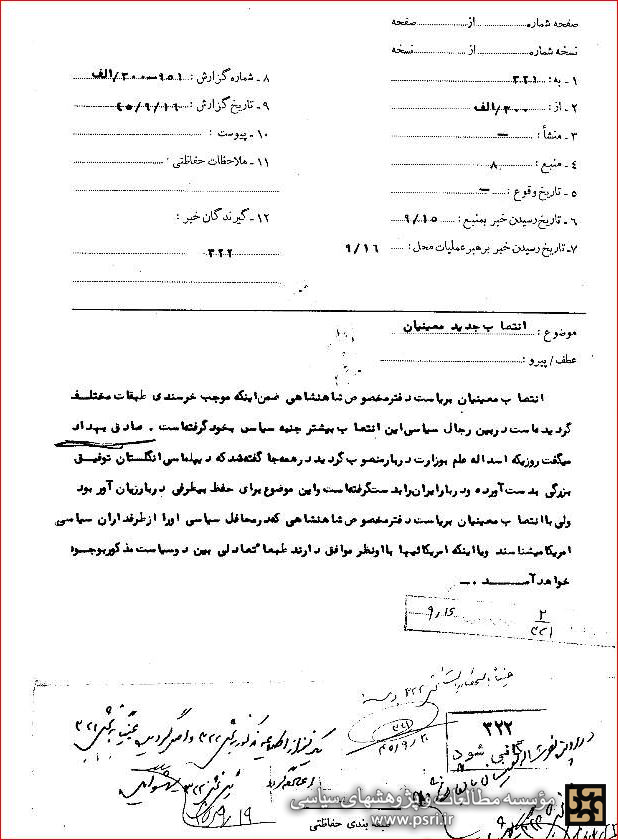 صفحه شماره ........ از ........ صفحه
نسخه شماره ........ از ........ نسخه
۱ـ به: ۳۲۱
۲ـ از: ۳۰۰/الف
۳ـ منشأ: ـ
۴ـ منبع: ۸
۵ـ تاریخ وقوع: ـ
۶ـ تاریخ رسیدن خبر بمنبع: ۹/۱۵
۷ـ تاریخ رسیدن خبر برهبر عملیات محل: ۹/۱۶
۸ـ شماره گزارش: ۹۵۱ـ۳۰۰/الف
۹ـ تاریخ گزارش: ۴۵/۹/۱۶
۱۰ـ پیوست:
۱۱ـ ملاحظات حفاظتی:
۱۲ـ گیرندگان خبر:
۳۲۲
موضوع: انتصاب جدید معینیان
عطف/پیرو:
انتصاب معینیان بریاست دفتر مخصوص شاهنشاهی ضمن اینکه موجب خرسندی طبقات مختلف
گردیده است در بین رجال سیاسی این انتصاب بیشتر جنبه سیاسی بخود گرفته است. صادق بهداد
میگفت روزیکه اسداله علم بوزارت دربار منصوب گردید در همه جا گفته شد که دیپلماسی انگلستان توفیق
بزرگی بدست آورده و دربار ایران را بدست گرفته است و این موضوع برای حفظ بیطرفی دربار زیان آور بود
ولی با انتصاب معینیان بریاست دفتر مخصوص شاهنشاهی که در محافل سیاسی او را از طرفداران سیاسی
امریکا میشناسند و یا اینکه امریکائیها با او نظر موافق دارند طبعا تعادلی بین دو سیاست مذکور بوجود
خواهد آمد .ـ
۹/۱۶
۲
۳۲۱
۳۲۱
۴۵/۹/
۳۲۲
بخش ۳۲۲
۹/۱۹
طبقه بندی حفاظتی
مؤسسه مطالعات و پژوهشهای سیاسی
www.psri.ir